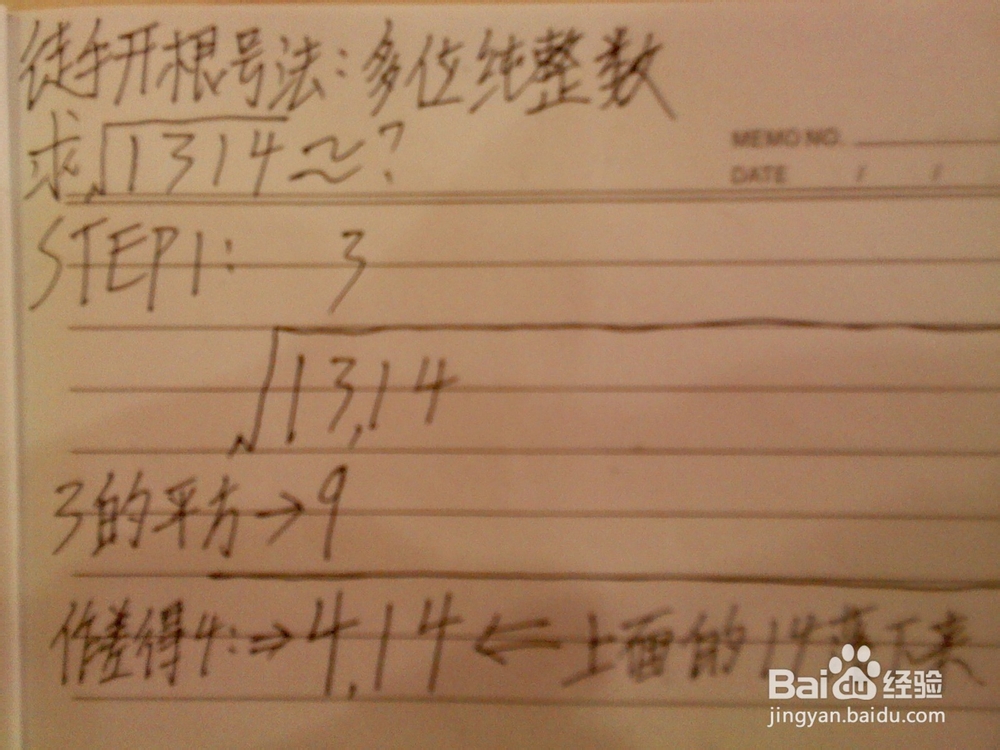 徒手开根号法：多位纯整数
求√1314≈？
MEMO NO.
DATE / /
STEP1： 3
√13,14
3的平方→9
作差得4：⇒4,14⇐上面的14落下来
Baidu经验
jingyan.baidu.com